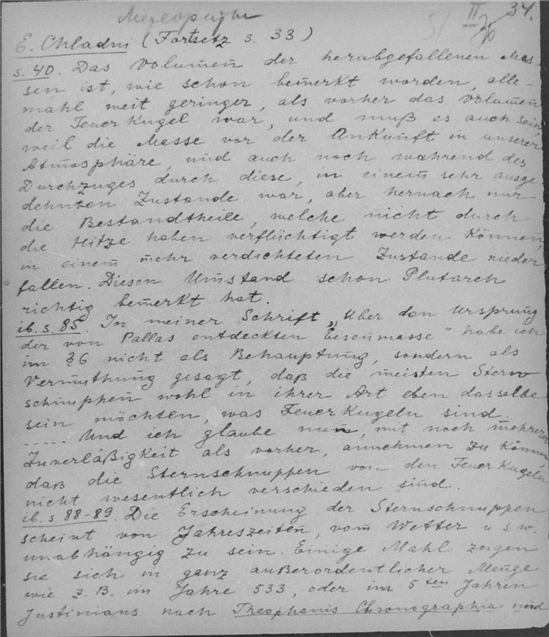 Метеориты
34.
E. Chladni (Fortsetz s. 33)
s. 40. Das Volumen der herabgefallenen Mas-
sen ist, wie schon bemerkt worden, alle-
mahl weit geringer, als vorher das Volumen
der Feuerkugel war, und muß es auch sein
weil die Masse vor der Ankunft in unserer
Atmosphäre, und auch noch während des
Durchzuges durch diese, in einem sehr ausge
dehnten Zustande war, aber hernach nur
die Bestandtheile, welche nicht durch
die Hitze haben verflüchtigt werden können
in einem mehr verdichteten Zustande nieder
fallen. Diesen Umstand schon Plutarch
richtig bemerkt hat.
ib. s. 85. In meiner Schrift „Über den Ursprung
der von Pallas entdeckten Eisenmasse" habe ich
im §6 nicht als Behauptung, sondern als
Vermuthung gesagt, daß die meisten Stern
schnuppen wohl in ihrer Art eben dasselbe
sein möchten, was Feuerkugeln sind
..... Und ich glaube nun, mit noch mehrerer
Zuverläßigkeit als vorher, annehmen zu können,
daß die Sternschnuppen von den Feuerkugeln
nicht wesentlich verschieden sind.
ib. s 88-89. Die Erscheinung der Sternschnuppen
scheint von Jahreszeiten, vom Wetter u s w.
unabhängig zu sein. Einige Mahl zeigen
sie sich in ganz außerordentlicher Menge
wie z. B. im Jahre 533, oder im 5ten Jahren
Justinians nach Theophanis Chronographia und